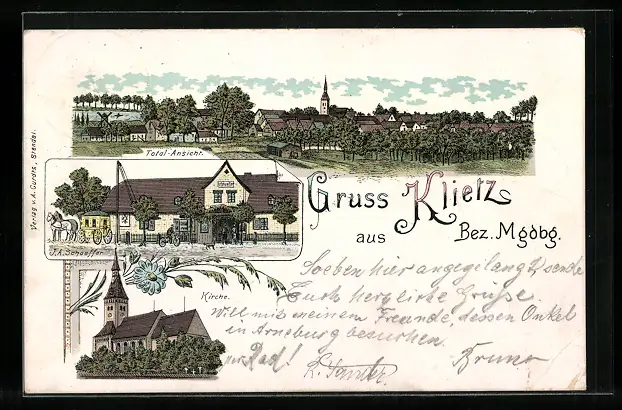 Total-Ansicht.
Verlag v. A. Curdts, Stendal.
Gruss
aus
Klietz
Bez. Mgdbg.
J.A. Schaeffer
Kirche.
Soeben hier angegilangt, sende
Euch herzliche Grüsse.
Will mit meinem Freunde, dessen Onkel
in Arneburg besuchen.
per Rad!
Bruno